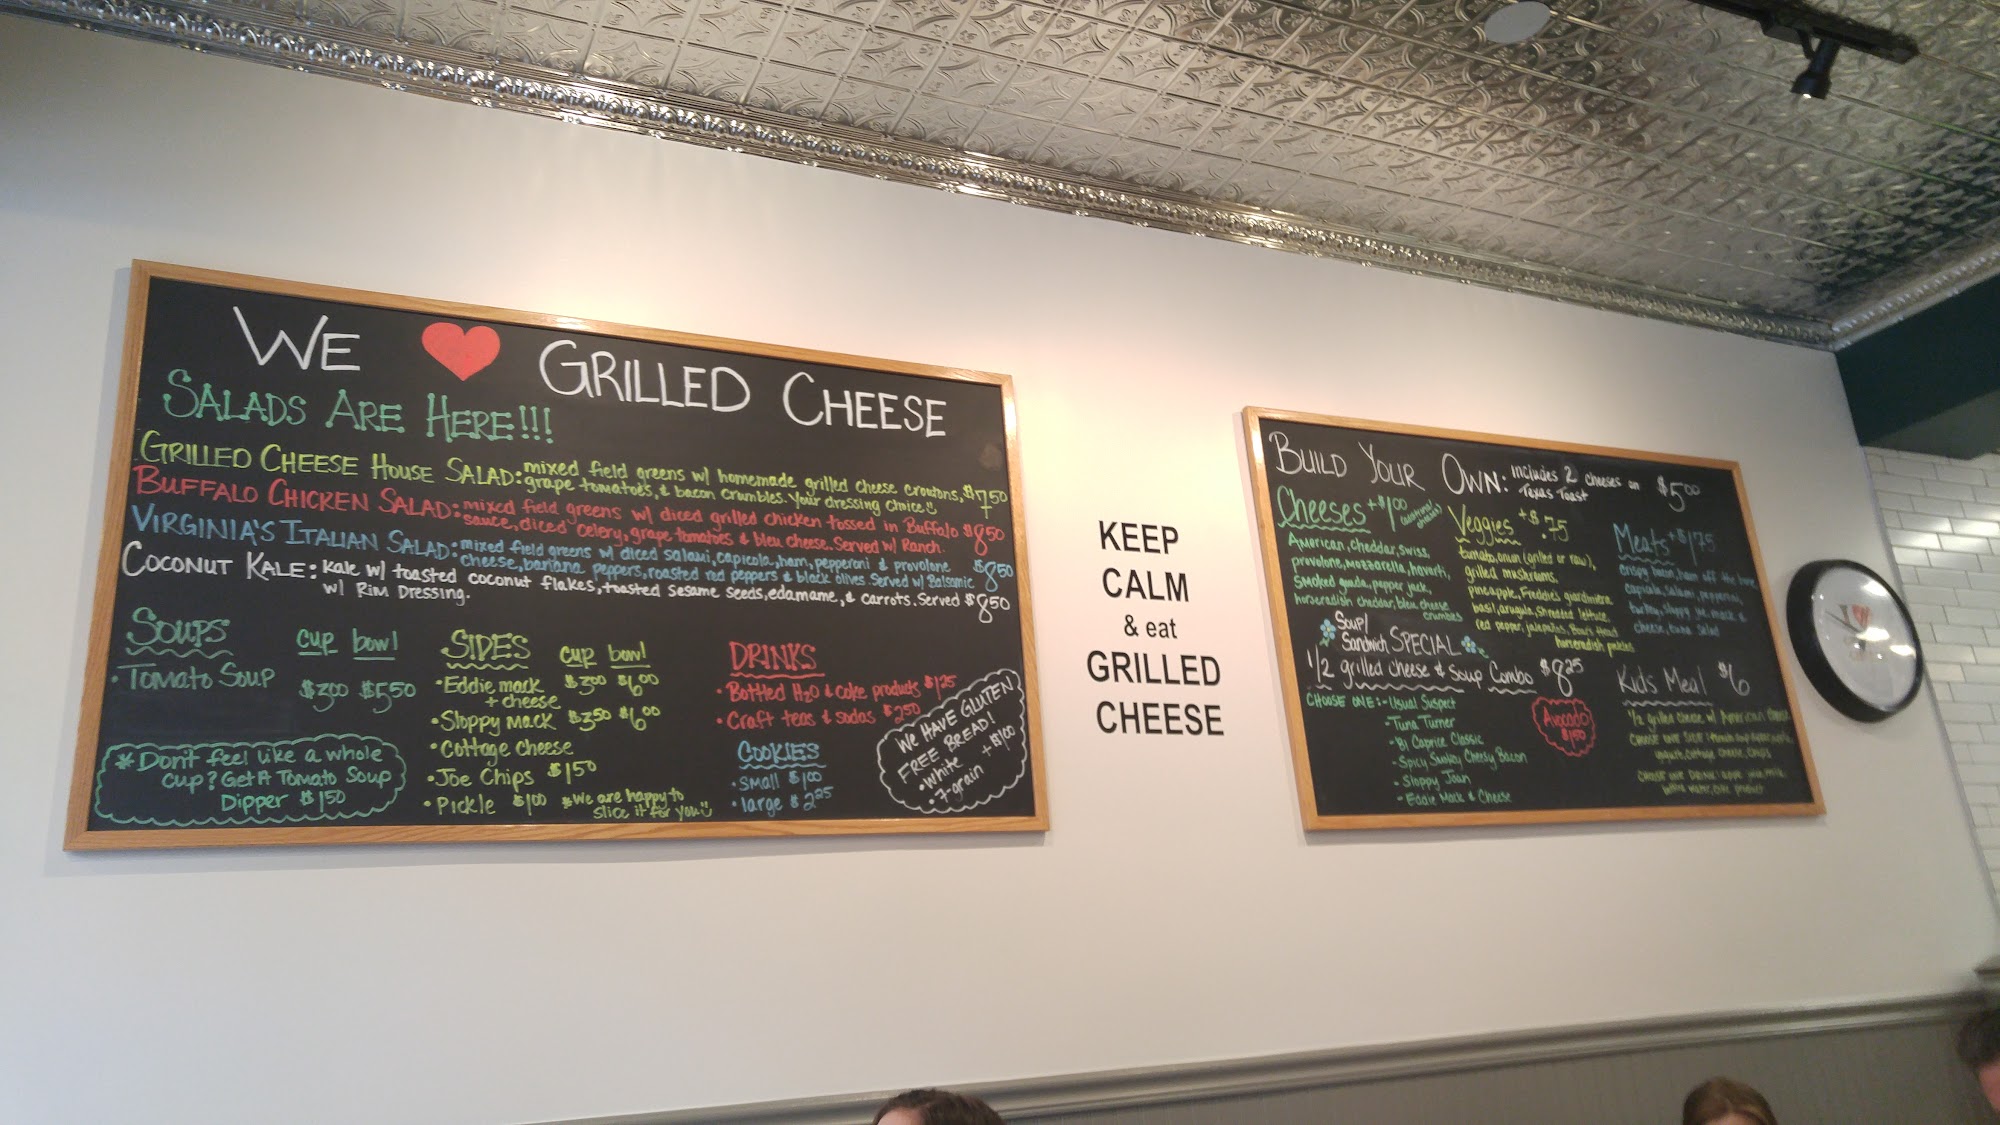 WE ♥ GRILLED CHEESE
SALADS ARE HERE!!!
GRILLED CHEESE HOUSE SALAD: mixed field greens w/ homemade grilled cheese croutons,
grape tomatoes, & bacon crumbles. Your dressing choice ☺ $7.50
BUFFALO CHICKEN SALAD: mixed field greens w/ diced grilled chicken tossed in Buffalo
sauce, diced celery, grape tomatoes & bleu cheese. Served w/ Ranch. $8.50
VIRGINIA'S ITALIAN SALAD: mixed field greens w/ diced salami, capicola, ham, pepperoni & provolone
cheese, banana peppers, roasted red peppers & black olives. Served w/ Balsamic $8.50
COCONUT KALE: Kale w/ toasted coconut flakes, toasted sesame seeds, edamame, & carrots. Served
w/ Rim Dressing. $8.50
SOUPS cup bowl
• Tomato Soup $3.00 $5.50
* Don't feel like a whole
cup? Get A Tomato Soup
Dipper $1.50
SIDES cup bowl
• Eddie mack
+ cheese $3.00 $6.00
• Sloppy mack $3.50 $6.00
• Cottage Cheese
• Joe Chips $1.50
• Pickle $1.00 * We are happy to
slice it for you ☺
DRINKS
• Bottled H2O & Coke products $1.25
• Craft teas & sodas $2.50
COOKIES
• small $1.00
• large $2.25
WE HAVE GLUTEN
FREE BREAD!
• White + $1.00
• 7-grain
KEEP
CALM
& eat
GRILLED
CHEESE
BUILD YOUR OWN: includes 2 cheeses on
Texas Toast $5.00
Cheeses +$1.00 (additional cheeses)
American, cheddar, swiss,
provolone, mozzarella, havarti,
Smoked gouda, pepper jack,
horseradish cheddar, bleu cheese
crumbles
Veggies +$.75
tomato, onion (grilled or raw),
grilled mushrooms,
pineapple, Freddie's giardiniera
basil, arugula, shredded lettuce,
red pepper, jalapeños, Boar's Head
horseradish pickles
Meats +$1.75
crispy bacon, ham off the bone
capicola, salami, pepperoni,
turkey, sloppy joe, mack &
cheese, tuna salad
Soup/
Sandwich SPECIAL
1/2 grilled cheese & Soup Combo $8.25
CHOOSE ONE: - Usual Suspect
- Tuna Turner
- Bi Caprice Classic
- Spicy Sunday Cheesy Bacon
- Sloppy Joan
- Eddie Mack & Cheese
Avocado
$1.50
Kids Meal $6
1/2 grilled cheese w/ American cheese
CHOOSE ONE SIDE: tomato soup
cottage cheese, chips
CHOOSE ONE DRINK: apple juice, milk,
bottled water, coke product